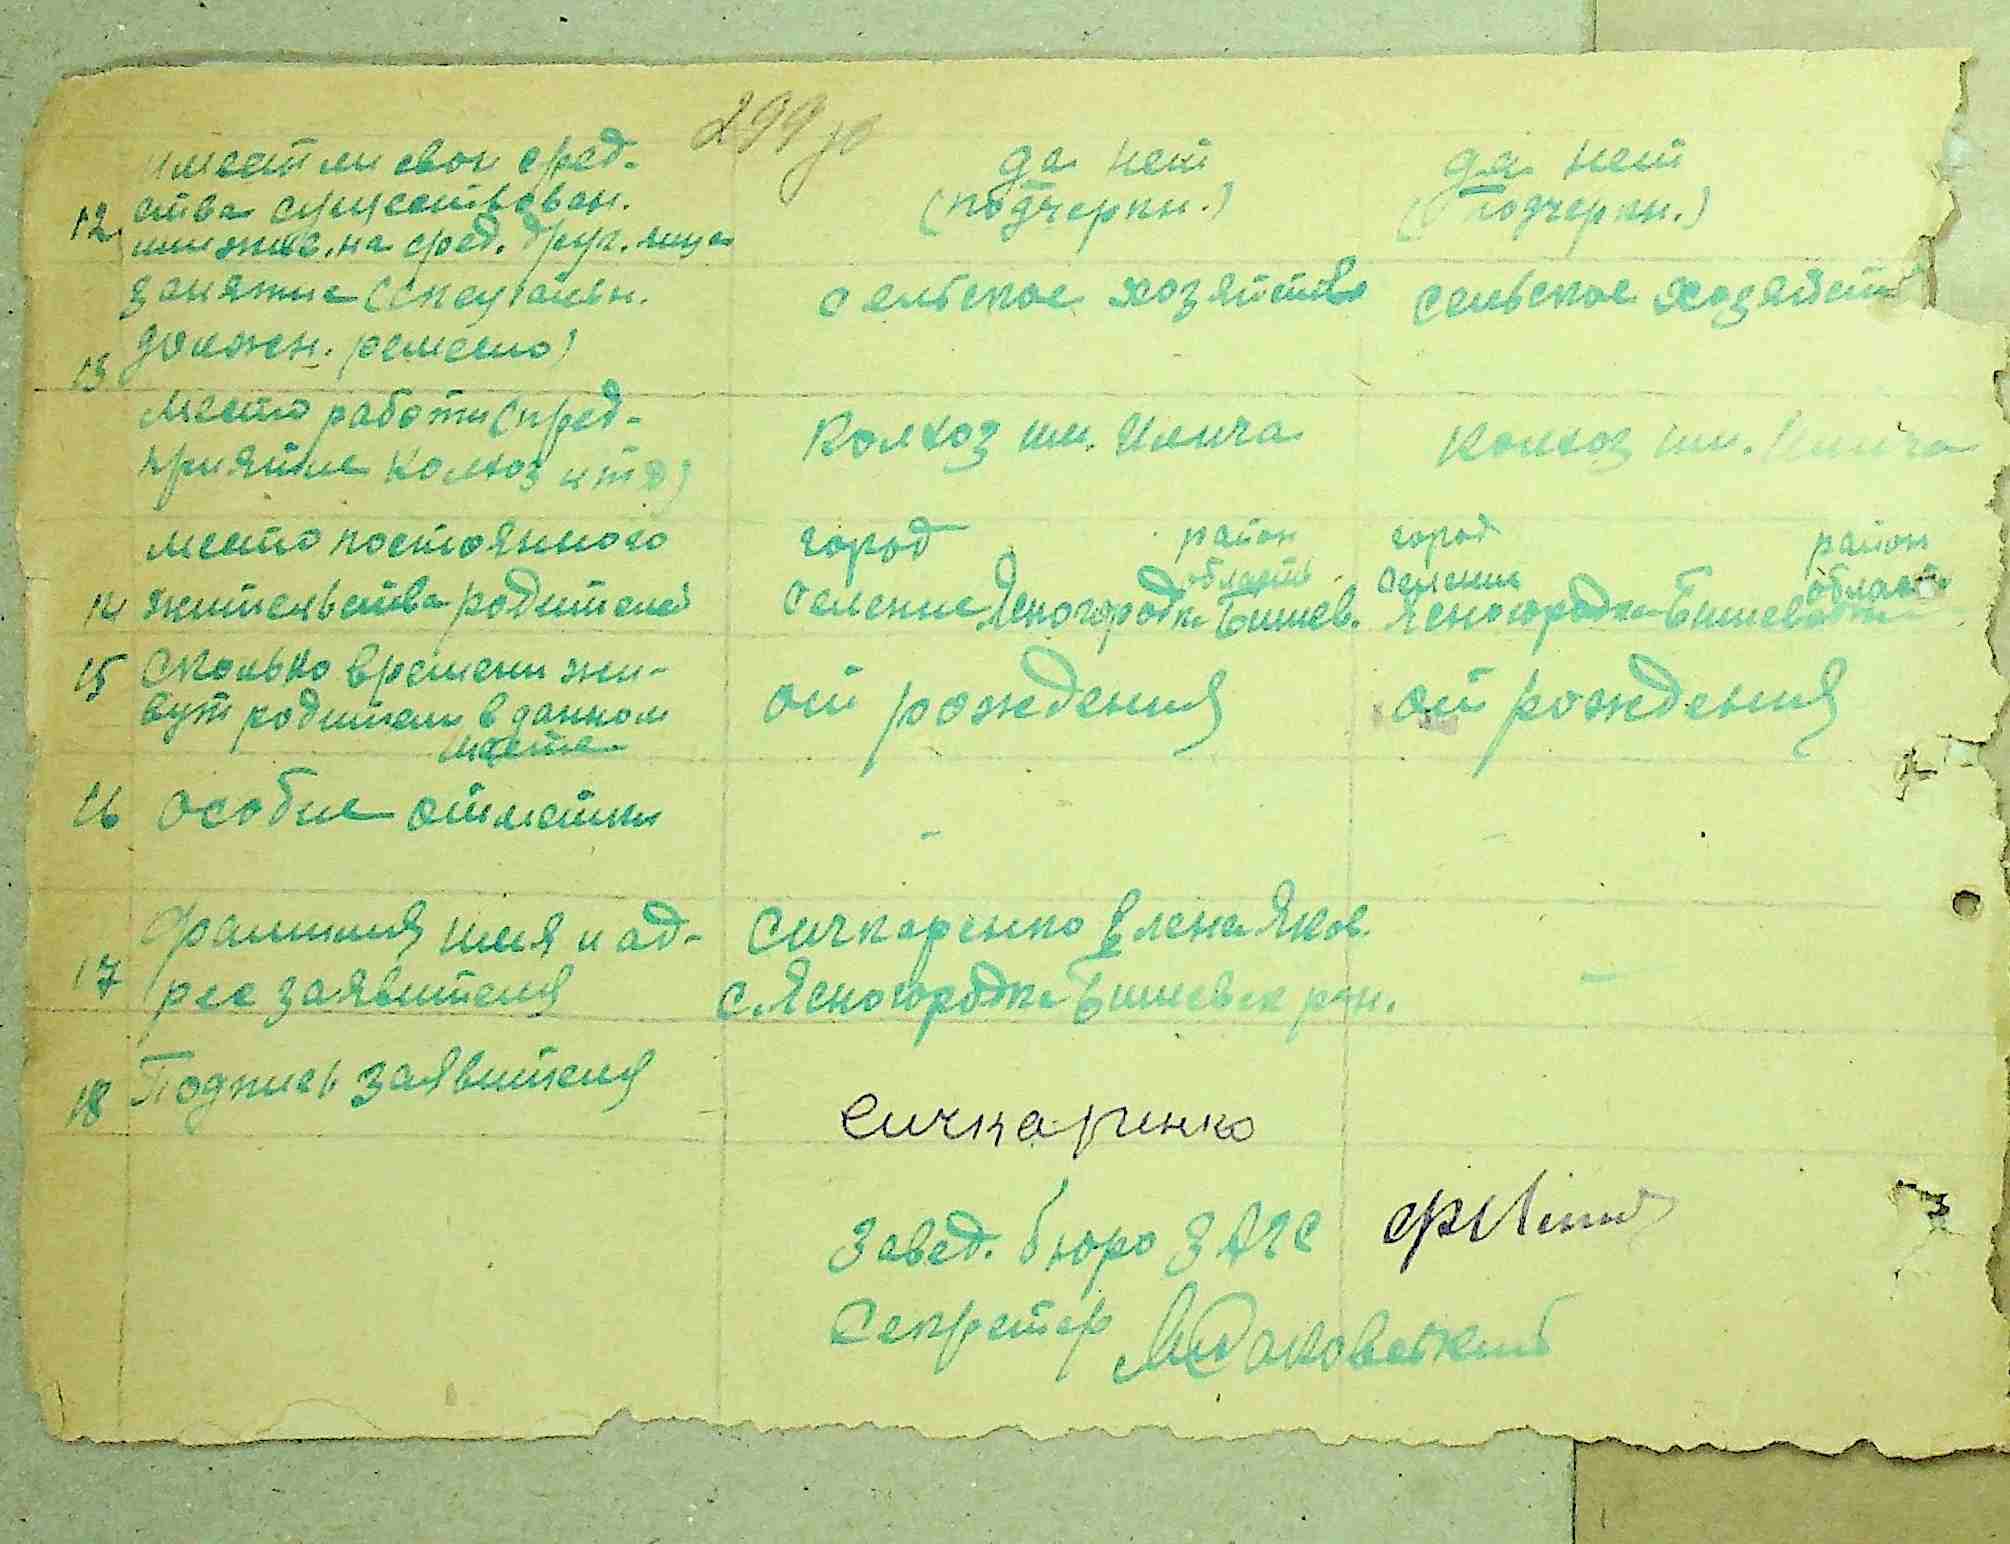 299
имеет ли свои сред-
ства существован.
12 или жив. на сред. друг. лица
да нет
(подчеркн.)
да нет
(подчеркн.)
занятие (специальн.
должен. ремесло)
13
сельское хозяйство
сельское хозяйств
место работи (пред-
приятие колхоз и т д)
Колхоз им. Илича
колхоз им. Илича
место постоянного
14 жительства родителей
город район
область
селение Ясногородка Бишев.
город район
селение область
Ясногородка Бишевск
15 сколько времени жи-
вут родители в данном
месте
от рождения
от рождения
16 особие отметки
-
-
Фамилия имя и ад-
17 рес заявителя
Сичкаренко Елена Яков.
с. Ясногородка Бишевск рай.
-
18 Подпись заявителя
Сичкаренко
Завед. бюро ЗАГС
Секретар